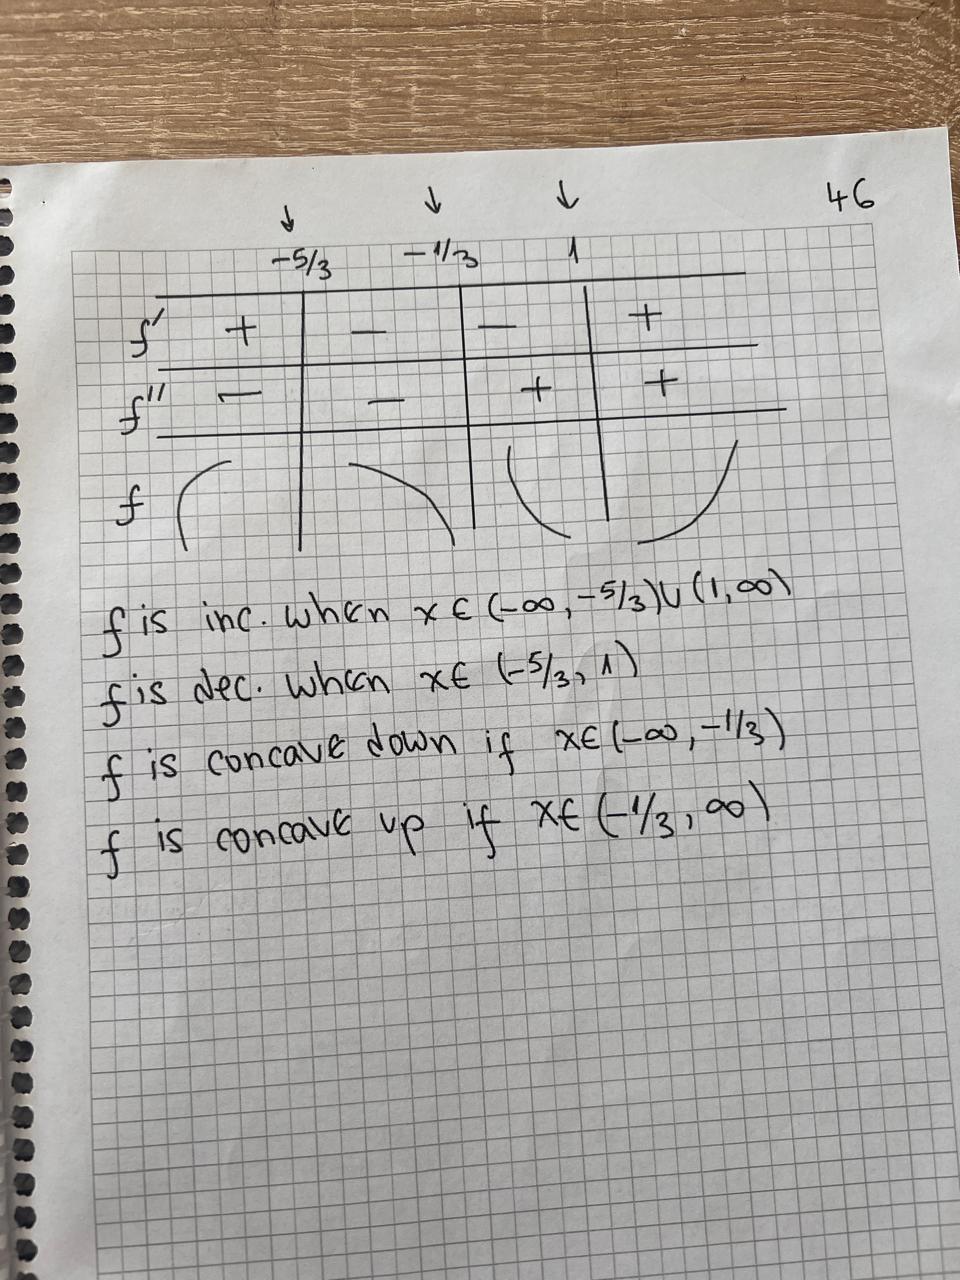 46
↓ ↓ ↓
-5/3 -1/3 1
f' + - - +
f'' - - + +
f
f is inc. when x ∈ (-∞, -5/3) ∪ (1, ∞)
f is dec. when x ∈ (-5/3, 1)
f is concave down if x ∈ (-∞, -1/3)
f is concave up if x ∈ (-1/3, ∞)